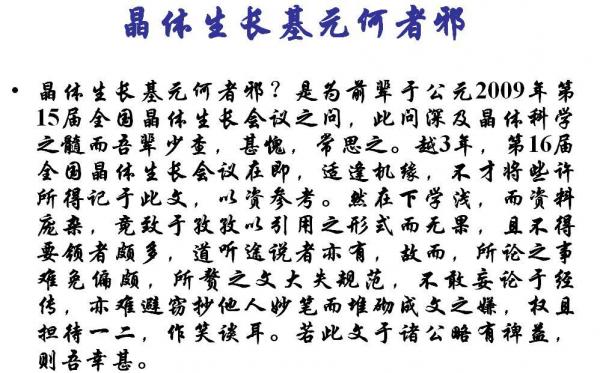 晶体生长基元何者邪
• 晶体生长基元何者邪？是为前辈于公元2009年第
15届全国晶体生长会议之问，此问深及晶体科学
之髓而吾辈少查，甚愧，常思之。越3年，第16届
全国晶体生长会议在即，适逢机缘，不才将些许
所得记于此文，以资参考。然在下学浅，而资料
庞杂，竟致于孜孜以引用之形式而无果，且不得
要领者颇多，道听途说者亦有，故而，所论之事
难免偏颇，所赘之文大失规范，不敢妄论于经
传，亦难避窃抄他人妙笔而堆砌成文之嫌，权且
担待一二，作笑谈耳。若此文于诸公略有裨益，
则吾幸甚。